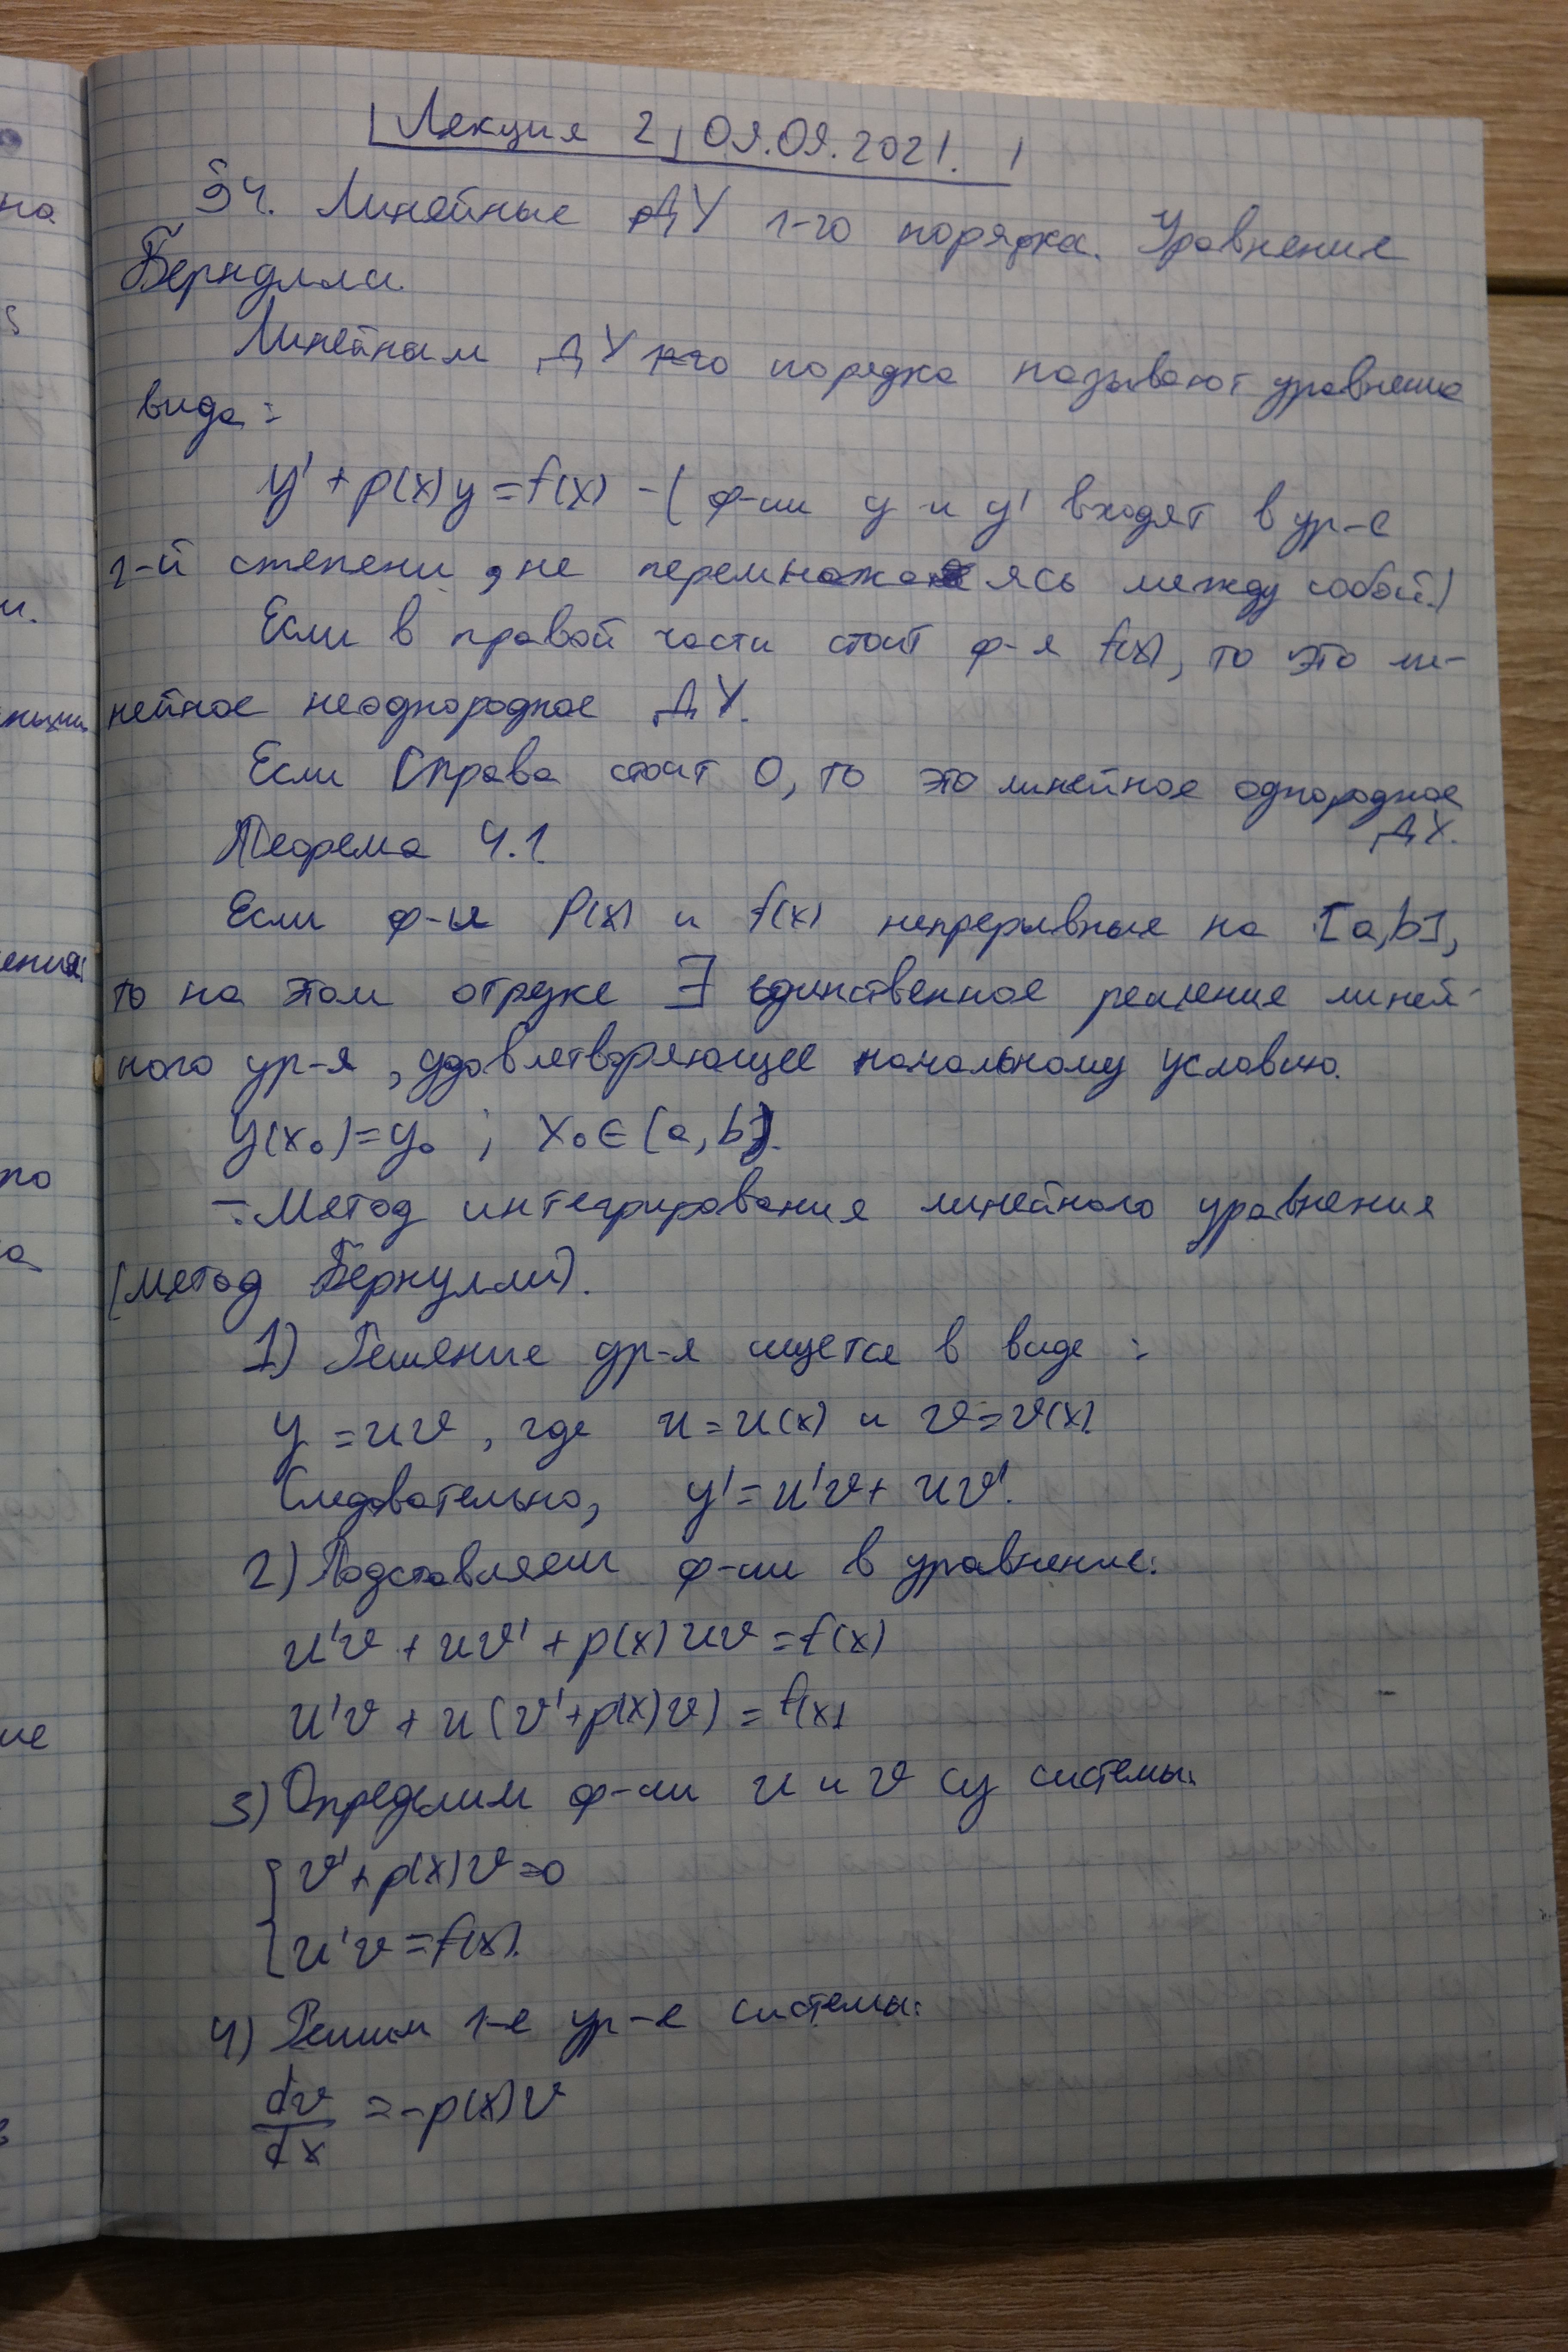 Лекция 2, 09.09.2021.
§4. Линейные ДУ 1-го порядка. Уравнение
Бернулли.
Линейным ДУ 1-го порядка называют уравнение
вида:
y' + p(x)y = f(x) - (ф-ии y и y' входят в ур-е
1-й степени, не перемножаясь между собой.)
Если в правой части стоит ф-я f(x), то это ли-
нейное неоднородное ДУ.
Если справа стоит 0, то это линейное однородное
ДУ.
Теорема 4.1
Если ф-и P(x) и f(x) непрерывные на [a,b],
то на этом отрезке ∃ единственное решение линей-
ного ур-я, удовлетворяющее начальному условию.
y(x₀)=y₀ ; x₀∈[a,b].
Метод интегрирования линейного уравнения
(метод Бернулли).
1) Решение ур-я ищется в виде:
y = uv, где u = u(x) и v = v(x)
Следовательно, y' = u'v + uv'.
2) Подставляем ф-ии в уравнение:
u'v + uv' + p(x)uv = f(x)
u'v + u(v' + p(x)v) = f(x)
3) Определим ф-ии u и v из системы:
{ v' + p(x)v = 0
u'v = f(x).
4) Решим 1-е ур-е системы:
dv/dx = -p(x)v
на
и.
ения:
по
а
ие